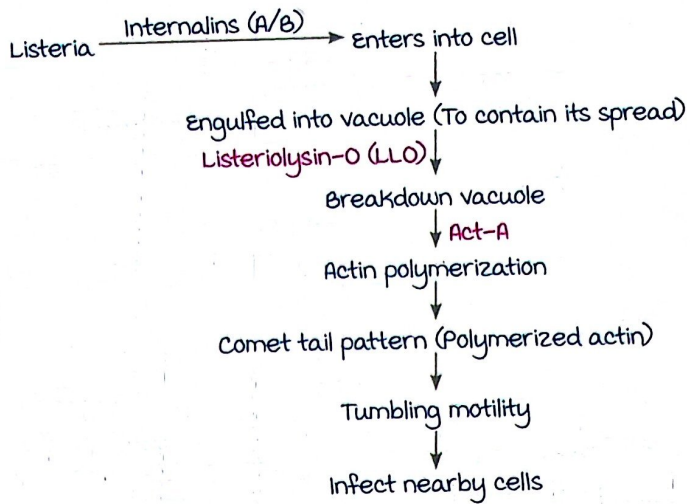 Internalins (A/B)
Listeria
Enters into cell
Engulfed into vacuole (To contain its spread)
Listeriolysin-O (LLO)
Breakdown vacuole
Act-A
Actin polymerization
Comet tail pattern (Polymerized actin)
Tumbling motility
Infect nearby cells